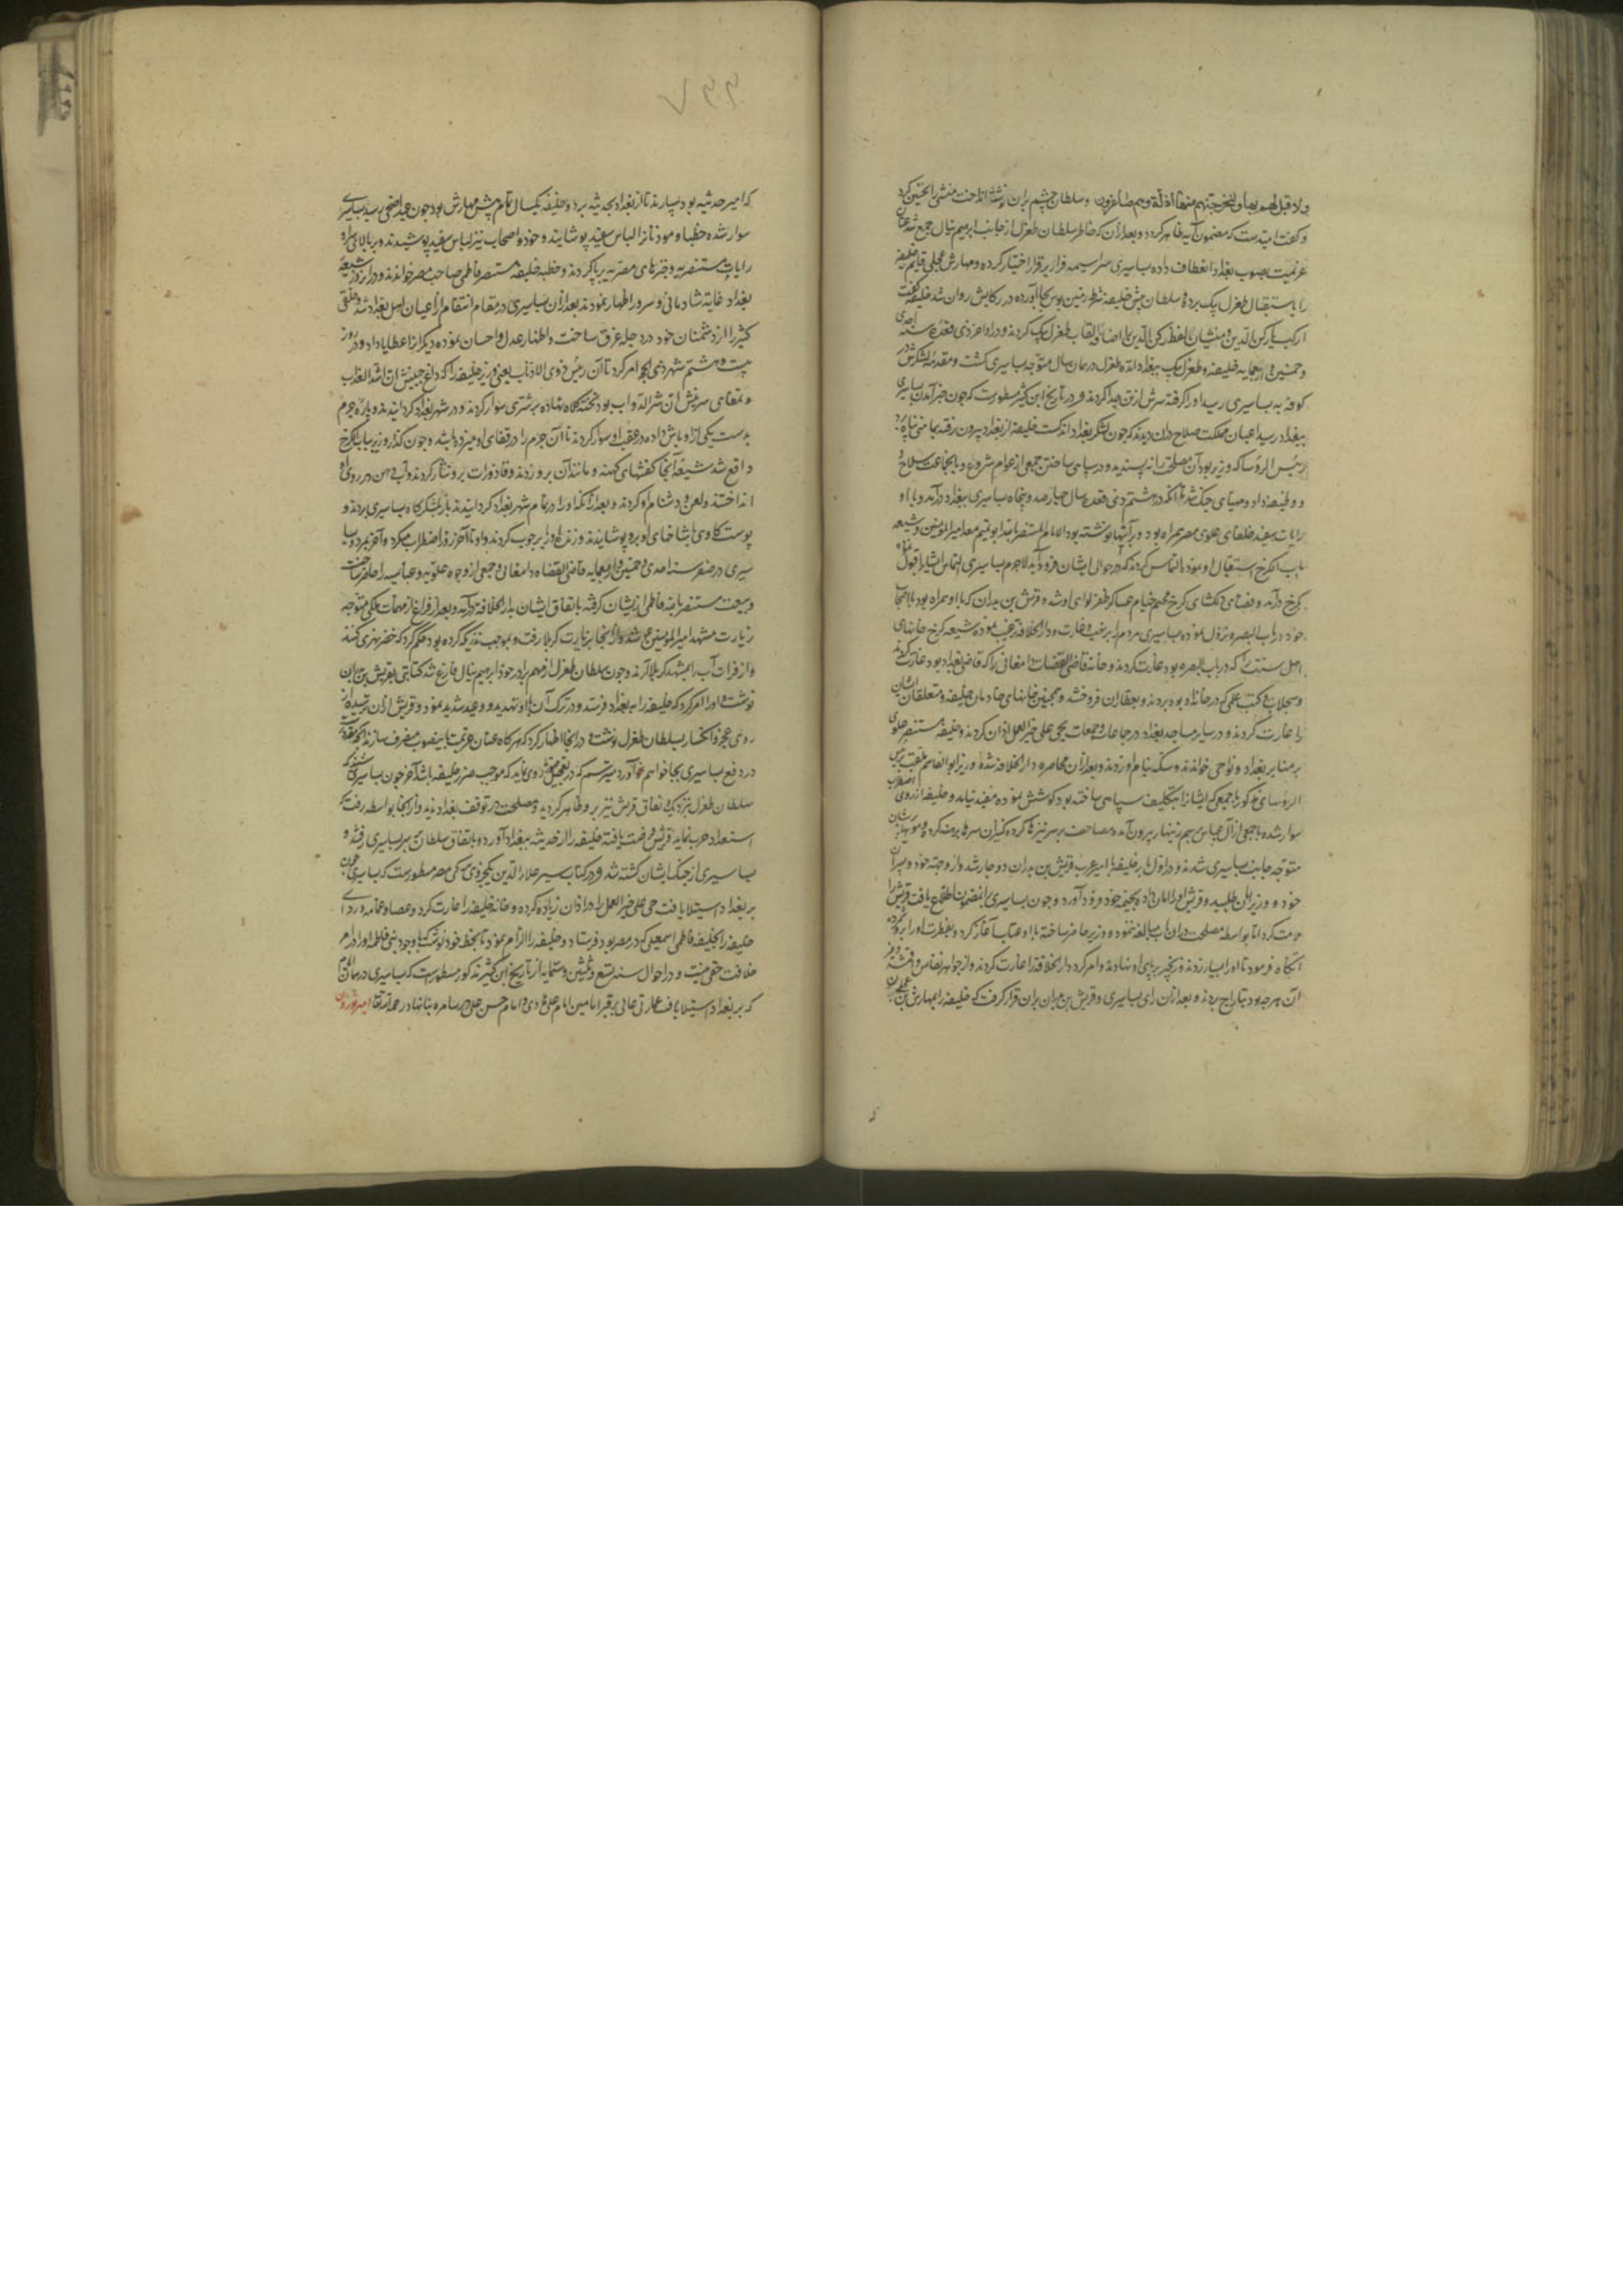 ولا قبل لهم بها ولنخرجنهم منها اذلة وهم صاغرون وسلطان چشم بران نوشته انداخت منشی را تحسین کرد
و گفت امیدست که مضمون آیه ظاهر کردد و بعد ازان که خاطر سلطان طغرل از جانب ابرهیم ینال جمع شد عنان
عزیمت بصوب بغداد انعطاف داده بساسیری سراسیمه فرار برقرار اختیار کرده و مهارش عجلی قایم خلیفه
را باستقبال طغرل بیک برد و سلطان پیش خلیفه شرط زمین بوس بجا آورده در رکابش روان شد خلیفه گفت
ارکب یا رکن الدین و منشیان لفظ رکن الدین را اضافه القاب طغرل بیک کردند و در اواخر ذی قعده سنه احدی
و خمسین و اربعمایه خلیفه و طغرل بیک ببغداد آمد طغرل در همان سال متوجه بساسیری گشت و مقدمه لشکرش در
کوفه به بساسیری رسید او را گرفته سرش از تن جدا کردند و در تاریخ ابن کثیر مسطورست که چون خبر آمدن بساسیری
ببغداد رسید اعیان مملکت صلاح دران دیدند که چون لشکر بغداد اندکست خلیفه از بغداد بیرون رفته بجامنی پناه برد
رئیس الروسا که وزیر بود آن مصلحت را نه پسندید و در سپاهی ساختن جمعی از عوام شروع و بانجماعت سلاح
و وظیفه داد و مهیای جنک شد تا انکه در هشتم ذی قعده سال چهارصد و پنجاه بساسیری ببغداد درآمد و با او
رایات سفید خلفای علوی مصر همراه بود و بر آنها نوشته بود الامام المستنصر بالله ابو تمیم معد امیر المومنین و شیعه
باب الکرخ استقبال او نموده التماس کردند که در حوالی ایشان فرود آید لاجرم بساسیری التماس ایشان را قبول نموده
بکرخ درآمد و فضای دلکشای کرخ مخیم خیام عساکر ظفر لوای او شد و قریش بن بدران که با او همراه بود با اصحاب
خود در باب البصره نزول نموده بساسیری مردم را بر نهب و غارت دار الخلافه ترغیب نموده شیعه کرخ خانهای
اهل سنت را که در باب البصره بود غارت کردند و خانه قاضی القضات دامغانی را که قاضی بغداد بود غارت کردند
و سجلات و کتب علمی که در خانه او بود بردند و بعطاران فروختند و همچنین خانهای خادمان خلیفه و متعلقان ایشان
را غارت کردند و در سایر مساجد بغداد در جماعات و جمعات بحی علی خیر العمل اذان کردند و خلیفه مستنصر علوی
بر منابر بغداد و نواحی خواندند و سکه بنام او زدند و بعد ازان محاصره دار الخلافه شده وزیر ابو القاسم ملقب برئیس
الروسای مذکور با جمعی که ایشانرا بتکلیف سپاهی ساخته بود کوشش نموده مفید نیامد و خلیفه از روی اضطراب
سوار شده با جمعی از آل عباس بهم زنهار بیرون آمده مصاحف بر سر نیزها کرده کنیزان سرها برهنه کرده
متوجه جانب بساسیری شدند و در اول بار خلیفه با امیر عرب قریش بن بدران دوچار شد و از و جهت خود و پسران
خود و وزیر امان طلبید و قریش او را امان داده بخیمه خود فرود آورد و چون بساسیری بر انمضمون اطلاع یافت قریش را
ملامت کرد اما بواسطه مصلحت دران باب مبالغه ننمود و وزیر حاضر ساخته با او عتاب آغاز کرد
انکاه فرمود تا او را بیازردند و زنجیر بر پای او نهادند و امر کرد دار الخلافه را غارت کردند و از جواهر نفایس و اقمشه و غیر
آن هرچه بود بتاراج بردند و بعد ازان رای بساسیری و قریش بن بدران بران قرار گرفت که خلیفه را بمهارش بن
٧٣٣
که امیر حدیثه بود بسپارند تا از بغداد بحدیثه برد و خلیفه یکسال تمام پیش مهارش بود چون عید اضحی رسید بساسیری
سوار شده خطبا و موذنانرا لباس سفید پوشانیدند و خود و اصحاب نیز لباس سفید پوشیدند و بر بالای سر او
رایات مستنصریه و چترهای مصریه برپا کردند و خطبه خلیفه مستنصر فاطمی صاحب مصر خواندند و دران روز شیعه
بغداد غایت شادمانی و سرور اظهار نمودند بعد ازان بساسیری در مقام انتقام از اعیان اهل بغداد شد و خلقی
کثیر را از دشمنان خود در دجله غرق ساخت و اظهار عدل و احسان نموده دیکرانرا عطایا داد و در روز
بیست و هشتم شهر ذی الحجه امر کرد تا آن رئیس ذوی الاذناب یعنی وزیر خلیفه را که داغ جبینش ان اشد العذاب
و تمغای سرینش ان شر الدواب بود تخته کلاه نهاده بر شتری سوار کردند و در شهر بغداد کردانیدند و پاره چرم
بدست یکی از اوباش داده در عقب او سوار کردند تا آن چرم را در قفای او میزده باشد و چون گذار وزیر بباب الکرخ
واقع شد شیعه آنجا کفشهای کهنه و مانند آن برو زدند و قاذورات برو نثار کردند و آب دهن در روی او
انداختند و لعن و دشنام او کردند و بعد از آنکه او را در تمام شهر بغداد کردانیدند باز بلشکرکاه بساسیری بردند و
پوست کاوی با شاخهای او برو پوشانیدند و زنده او را بر چوب کردند و او تا آخر روز اضطراب میکرد و آخر بمرد و بسا
سیری در صفر سنه احدی و خمسین و اربعمایه قاضی القضاة دامغانی و جمعی از وجوه علویه و عباسیه را حاضر ساخت
و بیعت مستنصر بالله فاطمی از یشان گرفته باتفاق ایشان بدار الخلافه درآمد و بعد از فراغ از مهمات ملکی متوجه
زیارت مشهد امیر المومنین شد و از انجا بزیارت کربلا رفت و بموجب نذری که کرده بود حکم کرد که حفر نهری کنند
و از فرات آب را بمشهد کربلا آرند و چون سلطان طغرل از مهم برادر خود ابرهیم ینال فارغ شد کتابتی بقریش بن بدران
نوشت و او را امر کرد که خلیفه را به بغداد فرستد و در ترک آن او را تهدید و وعید شدید نمود و قریش ازان ترسیده از
روی عجز و انکسار بسلطان طغرل نوشت و در انجا اظهار کرد که هرکاه عنان عزیمت باینصوب منصرف سازند
در دفع بساسیری بجا خواهم آورد میترسم که در تعجیل روی نماید که موجب ضرر خلیفه باشد آخر چون بساسیری
سلطان طغرل نزدیک و نفاق قریش نیز برو ظاهر کردید و مصلحت در توقف بغداد ندید و از انجا بواسط رفت که
استعداد حرب نماید قریش فرصت یافته خلیفه را از حدیثه ببغداد آورد و باتفاق سلطان بر سر بساسیری رفتند و
بساسیری از جنک ایشان کشته شد و در کتاب سیر علاء الدین مسطورست که بساسیری چون
بر بغداد استیلا یافت حی علی خیر العمل را در اذان زیاده کرده و خانه خلیفه را غارت کرد و عصا و عمامه و ردای
خلیفه را بخلیفه فاطمی اسمعیلی که در مصر بود فرستاد و خلیفه را الزام نمود تا بخط خود نوشت که با وجود بنی فاطمه او را در امر
خلافت حقی نیست و در احوال سنه تسع و ثلثین و ستمایه از تاریخ ابن کثیر مذکور مسطورست که بساسیری در همان ایام
که بر بغداد استیلا یافت عمارتی عالی بر قبر امامین امام علی هادی و امام حسن در سامره بنا نهاد رحمه الله تعالی